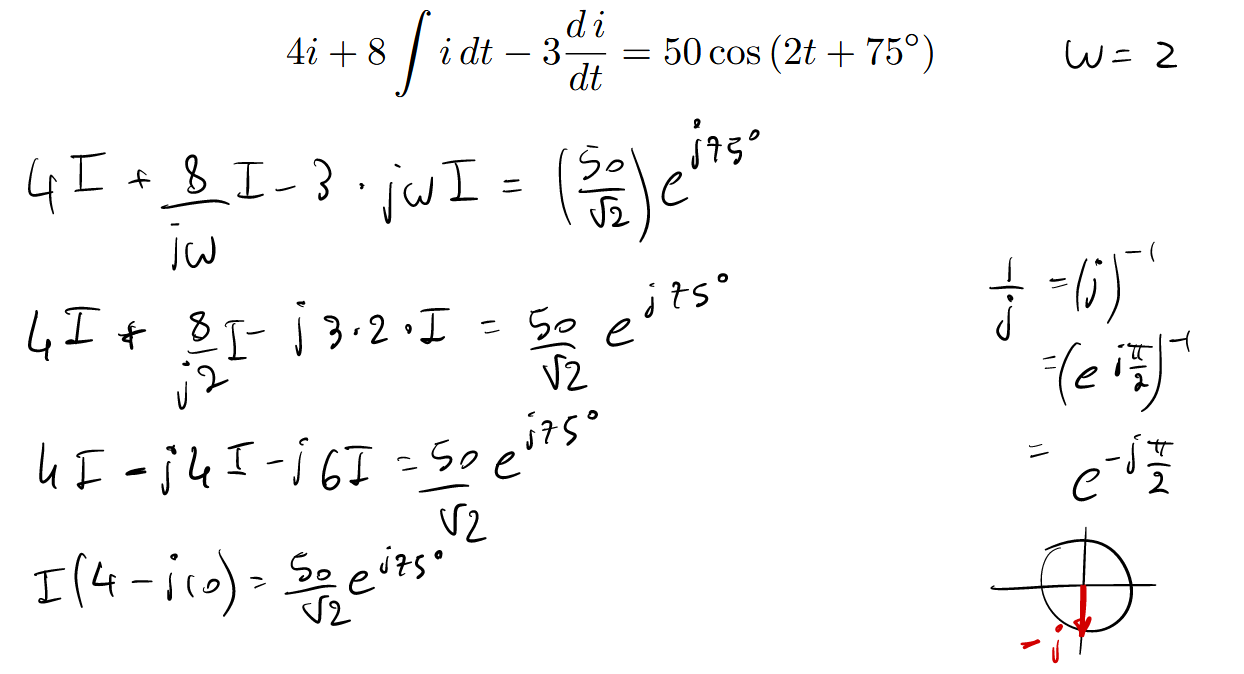 4i + 8 ∫ i dt − 3 di/dt = 50 cos (2t + 75°)
ω = 2
4I + 8/(jω) I − 3 · jωI = (50/√2) e^{j75°}
4I + 8/(j2) I − j3·2·I = 50/√2 e^{j75°}
4I − j4I − j6I = 50/√2 e^{j75°}
I(4 − j10) = 50/√2 e^{j75°}
1/j = (j)^{-1}
= (e^{jπ/2})^{-1}
= e^{-jπ/2}
−j